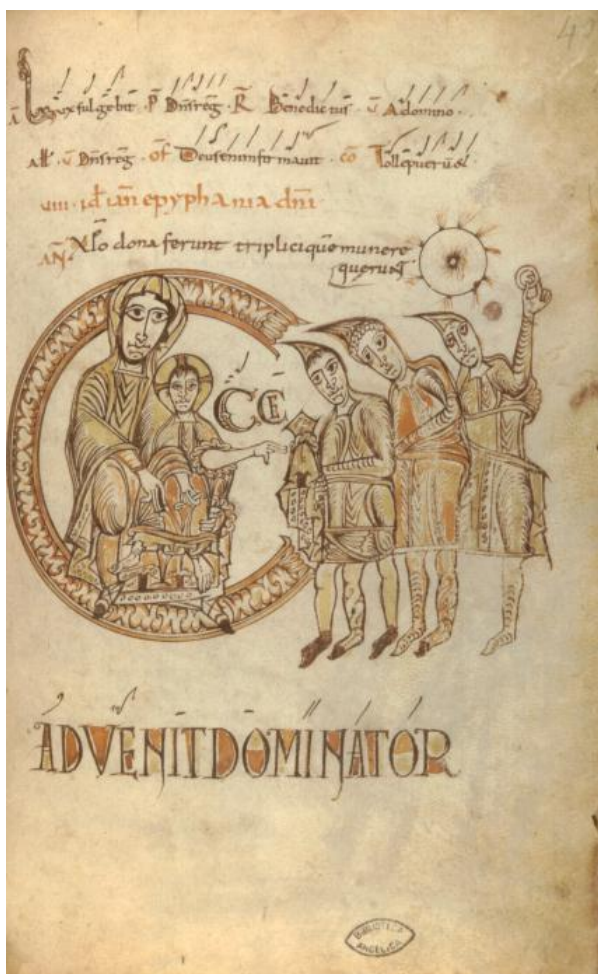 Lux fulgebit · P̄ Dn̄sreg · R̄ Benedictus · v̄ Adomino ·
all̄ · v̄ Dn̄sreg · of̄ Deusenimfirmavit · co Tollepuerū &
viii · id ian epyphania dn̄i
AN̄ dona ferunt triplicique munere
querunt
CCE
ADVENIT DOMINATOR
BIBLIOTECA
ANGELICA